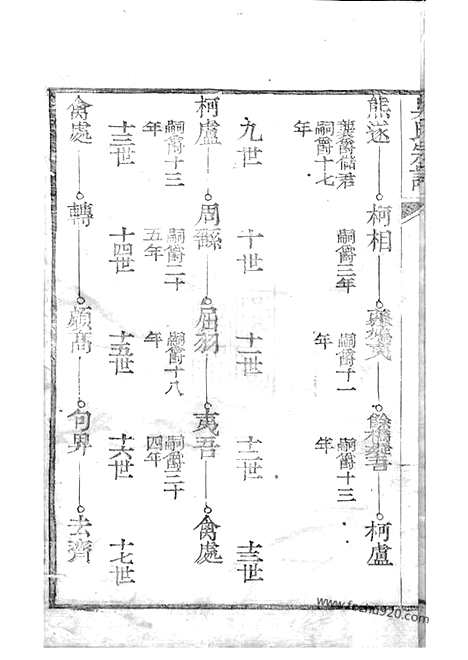 吳氏宗譜
熊遂 柯相 彊鳩夷 餘橋疑吾 柯盧
襲爵儲君嗣爵十七年
嗣爵三年
嗣爵十一年
嗣爵十三年
九世 十世 十一世 十二世 十三世
柯盧 周繇 屈羽 夷吾 禽處
嗣爵十三年
嗣爵二十五年
嗣爵十八年
嗣爵二十四年
十三世 十四世 十五世 十六世 十七世
禽處 轉 頗高 句畀 去濟
www.foshu920.com